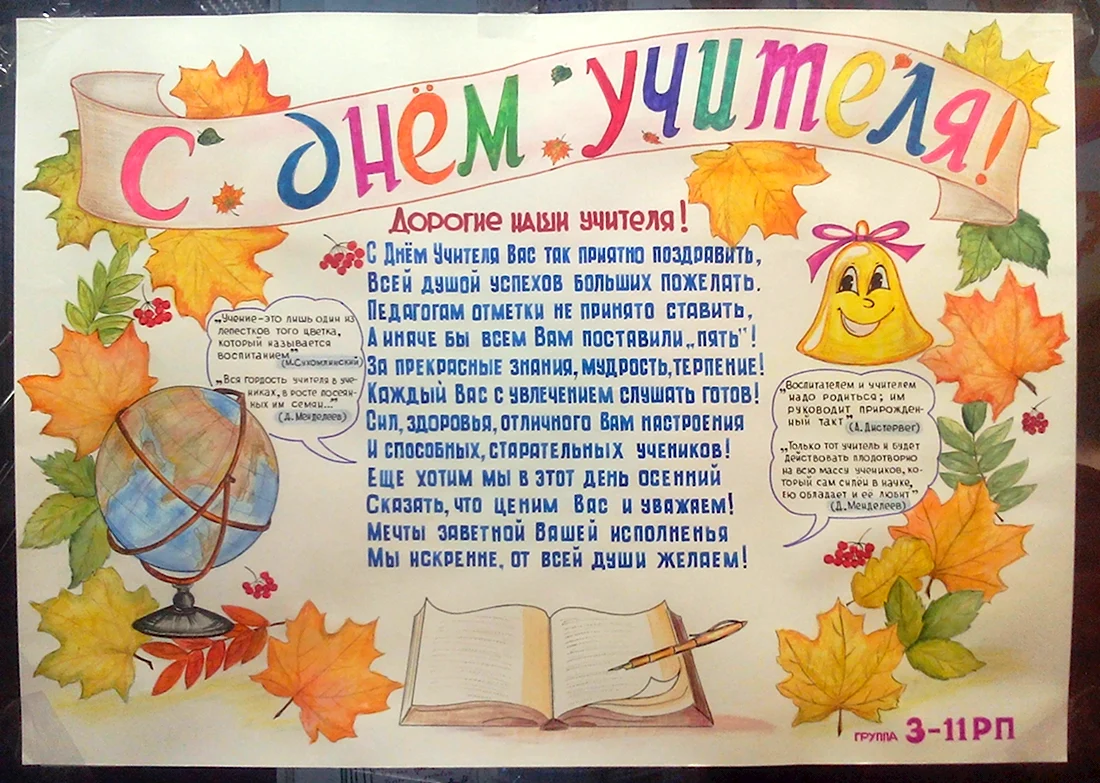 С днём учителя!
Дорогие наши учителя!
С Днём Учителя Вас так приятно поздравить,
Всей душой успехов больших пожелать.
Педагогам отметки не принято ставить,
А иначе бы всем Вам поставили „пять"!
За прекрасные знания, мудрость, терпение!
Каждый Вас с увлечением слушать готов!
Сил, здоровья, отличного Вам настроения
И способных, старательных учеников!
Еще хотим мы в этот день осенний
Сказать, что ценим Вас и уважаем!
Мечты заветной Вашей исполненья
Мы искренне, от всей души желаем!
„Учение-это лишь один из
лепестков того цветка,
который называется
воспитанием"
(М.Сухомлинский)
„Вся гордость учителя в уче-
никах, в росте посеян-
ных им семян..."
(Д. Менделеев)
„Воспитателем и учителем
надо родиться; им
руководит прирожден-
ный такт"
(А. Дистервег)
„Только тот учитель и будет
действовать плодотворно
на всю массу учеников, ко-
торый сам силён в науке,
ею обладает и её любит"
(Д. Менделеев)
группа 3-11РП